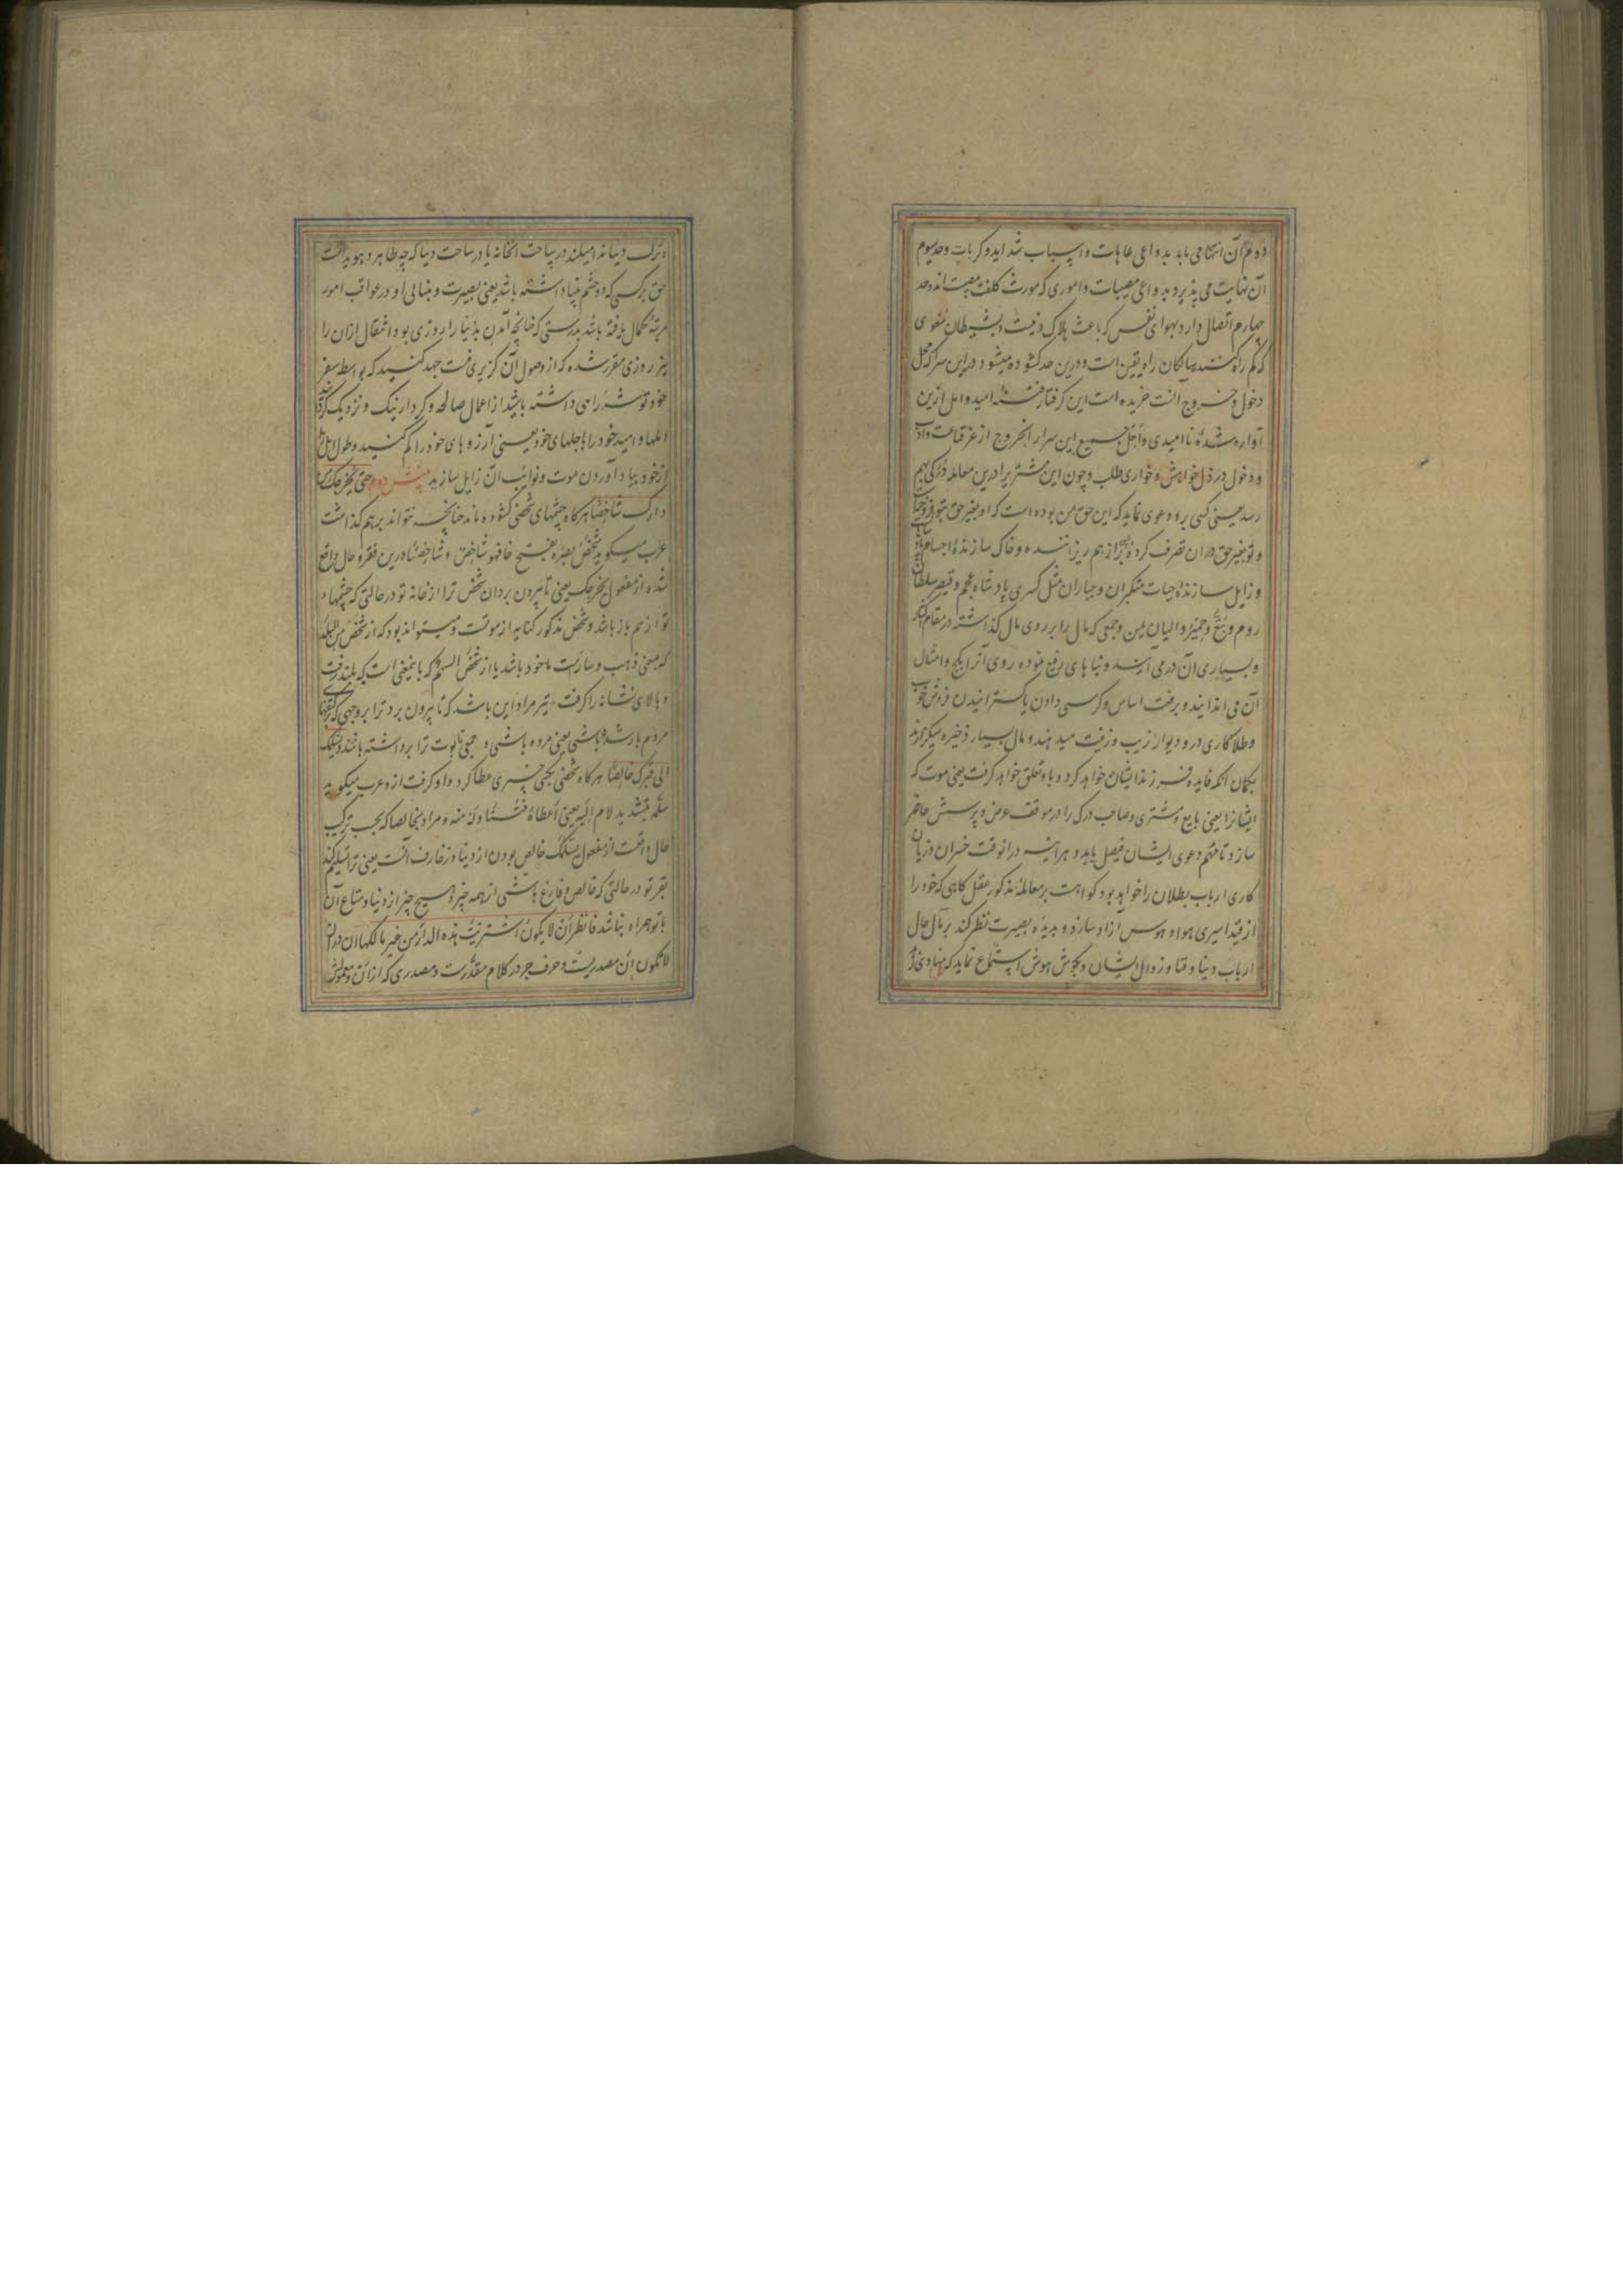 دوم آن انتها می یابد بدواعی عاهات و اسباب شداید و کربات و حد سیوم
آن نهایت می پذیرد بدواعی مصیبات و اموری که مورث کلفت مصیبت اند و حد
چهارم اتصال دارد بهوای نفس که باعث هلاک و نیست و بشیطان مغوی
که کم راه کننده سالکان راه یقین است و درین حد کشوده میشود در این سرا که محل
دخول و خروج آنست خریده است این کرفتار فتنه امید و امل ازین
آواره شدهٔ ناامیدی و اجل جمیع این سرا را بخروج از عز قناعت و ادب
و دخول در ذل خواهش و خواری طلب و چون این مشتریرا درین معامله درکی بهم
رسد یعنی کسی برو دعوی نماید که این حق من بوده است که او بغیر حق بتو فروخته
و تو بغیر حق در ان تصرف کردهٔ از هم ریزاننده و خاک سازندهٔ اجسام
و زایل سازندهٔ حیات متکبران و جباران مثل کسری پادشاه عجم و قیصر سلطان
روم و تبع و حمیر والیان یمن و جمعی که مال را بر روی مال کذاشته در مقام
و بسیاری آن در می آیند و بناهای رفیع نموده روی آنرا بکج و امثال
آن می اندایند و برفعت اساس و کرسی دادن یا کسترانیدن فروش خوب
و طلاکاری در و دیوار زیب و زینت میدهند و مال بسیار ذخیره میکذارند
بکمان انکه فایده فرزندایشان خواهد کرد و باو تعلق خواهد کرفت یعنی موت که
ایشانرا یعنی بایع و مشتری و صاحب درک را در موقف عرض و پرسش حاضر
سازد تا مهم دعوی ایشان فیصل یابد و هر اینه در انوقت خسران و زیان
کاری ارباب بطلان را خواهد بود کواهست بر معاملهٔ مذکور عقل کاهی که خود را
از قید اسیری هوا و هوس آزاد سازد و بدیدهٔ بصیرت نظر کند بر مآل حال
ارباب دنیا و فنا و زوال ایشان و بکوش هوش استماع نماید که منادی
و ترک دنیا ندا میکند در ساحت انخانه یا در ساحت دنیا که چه ظاهر و هویداست
حق بر کسی که دو چشم بینا داشته باشد یعنی بصیرت و بینایی او در عواقب امور
مرتبهٔ کمال یافته باشد بدرستی که چنانچه آمدن بدنیا را روزی بود انتقال ازان را
نیز روزی مقرر شده که از وصول آن کزیری نیست جهد کنید که بواسطه سفر
خود توشه راهی داشته باشید از اعمال صالحه و کردار نیک و نزدیک کردانید
املها و امید خود را با جلهای خود یعنی آرزوهای خود را کم کنید و طول امل را
از خود بیاد آوردن موت و نوایب آن زایل سازید بینش دوم حتی یخرجک من
دارک شاخصا هرکاه چشمهای شخصی کشوده ماند چنانچه نتواند بر هم کذاشت
عرب میکوید شخص بصره بفتح خا فهو شاخص و شاخصا درین فقره حال واقع
شده از مفعول یخرجک یعنی تا بیرون برد ان شخص ترا از خانه تو در حالتی که چشمهاء
تو از هم باز باشد و شخص مذکور کنایه از موتست و میتواند بود که از شخص من البلد
که بمعنی ذهب و سارست ماخوذ باشد یا از شخص السهم که باینمعنی است که بلند رفت
و بالای نشانه را کرفت تیر مراد این باشد که تا بیرون برد ترا بر وجهی که
مردم بار شده باشی یعنی مرده باشی و جمعی تابوت ترا برداشته باشند و یسلمک
الی قبرک خالصا هرکاه شخصی بکسی چیزی عطا کرد و او کرفت ازو عرب میکوید
سلمه بتشدید لام الیه یعنی اعطاه فتناوله منه و مراد بخالصا که بحسب ترکیب
حال واقعست از مفعول یسلمک خالص بودن از دنیا و زخارف آنست یعنی ترا تسلیم کند
بقبر تو در حالتی که خالص و فارغ باشی از همه چیز و هیچ چیز از دنیا و متاع آن
با تو همراه نباشد فانظر أن لا یکون اشتریت هذه الدار من غیر مالکها ان در ان
لا یکون ان مصدریت و حرف جر در کلام مقدرست و مصدری که از ان و معمولش